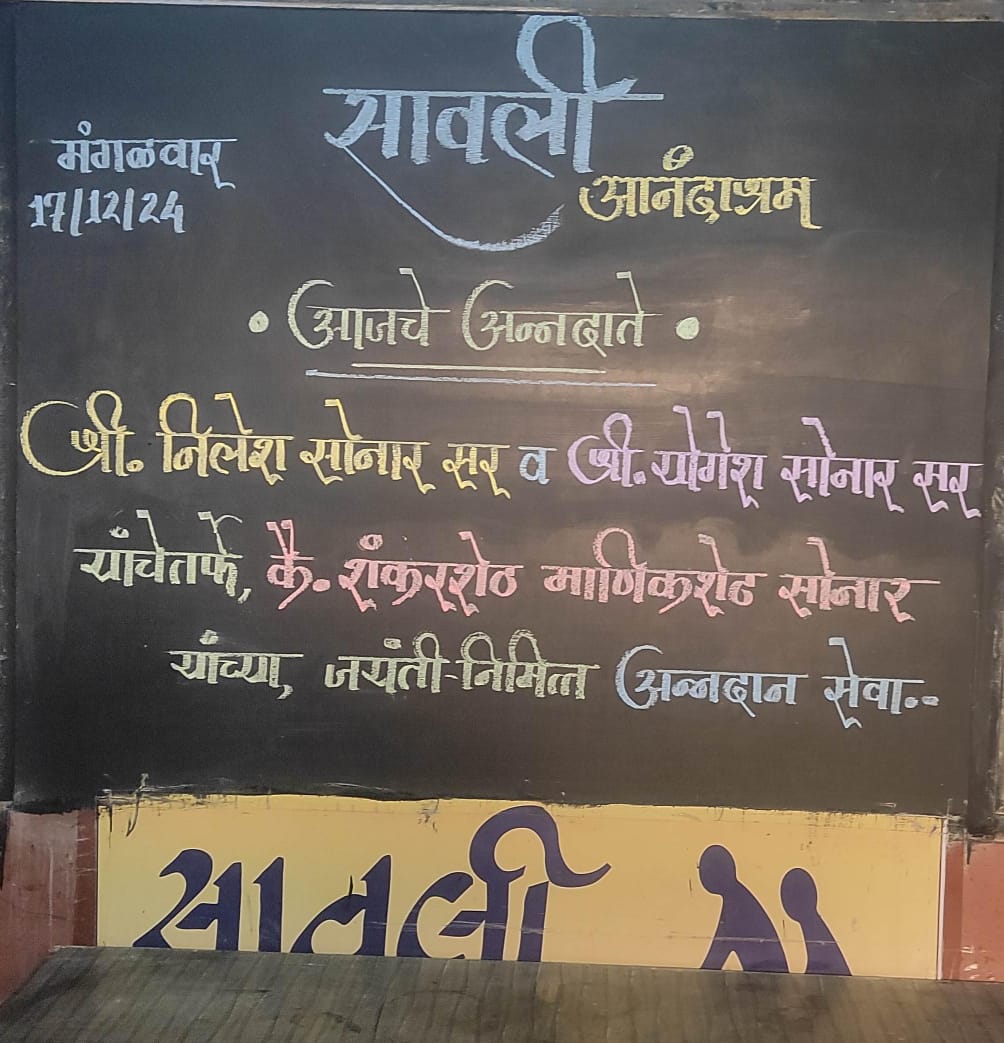 सावली
मंगळवार
17/12/24
आनंदाश्रम
• आजचे अन्नदाते •
श्री. निलेश सोनार सर व श्री. योगेश सोनार सर
यांचेतर्फे, कै. शंकरशेठ माणिकशेट सोनार
यांच्या, जयंती-निमित्त अन्नदान सेवा..
सावली